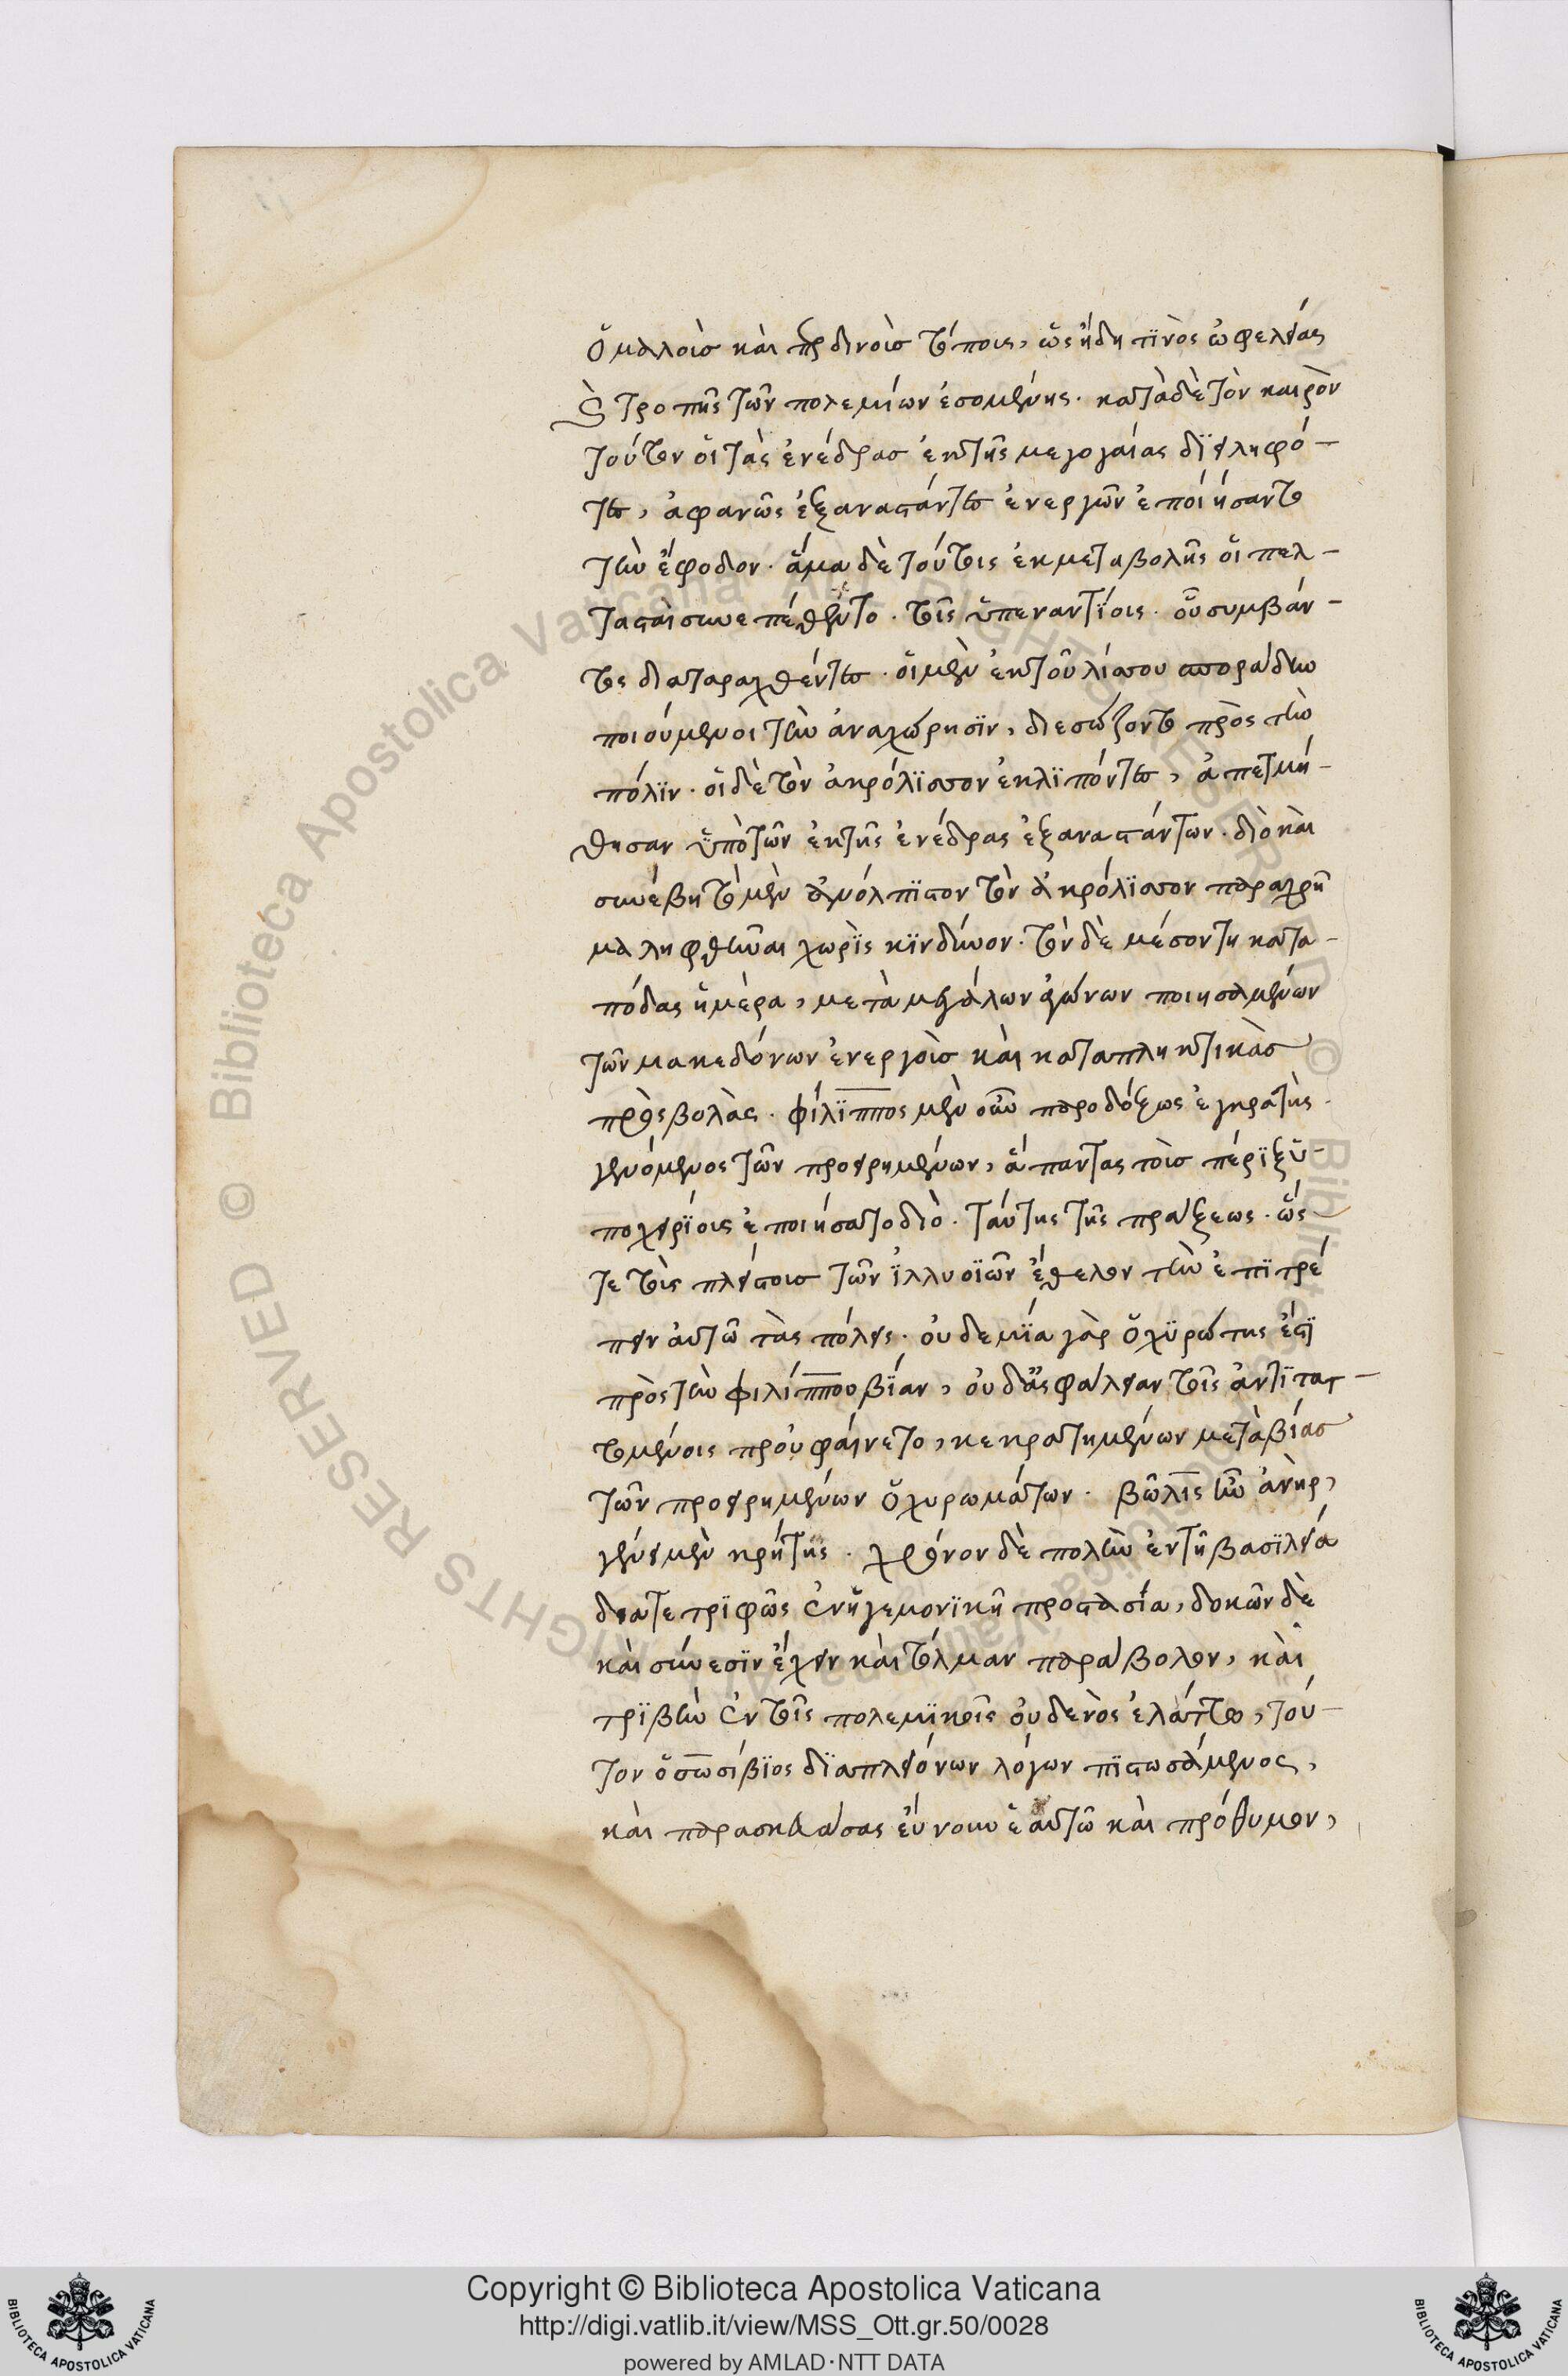 ὁμαλοῖσ καὶ πεδινοῖσ τόποις, ὡς ἤδη τινὸς ὠφελείας
καὶ τροπῆς τῶν πολεμίων ἐσομένης· κατὰ δὲ τὸν καιρὸν
τοῦτον οἱ τὰς ἐνέδρασ ἐκ τῆς μεσογαίας διειληφό-
τες, ἀφανῶς ἐξαναστάντες ἐνεργὸν ἐποιήσαντο
τὴν ἔφοδον· ἅμα δὲ τούτοις ἐκ μεταβολῆς οἱ πελ-
τασταὶ συνεπέθεντο· τοῖς ὑπεναντίοις· οὗ συμβάν-
τος διαταραχθέντες· οἱ μὲν ἐκ τοῦ λίσσου σποράδην
ποιούμενοι τὴν ἀναχώρησιν, διεσώζοντο πρὸς τὴν
πόλιν· οἱ δὲ τὸν ἀκρόλισσον ἐκλιπόντες, ἀπετμή-
θησαν ὑπὸ τῶν ἐκ τῆς ἐνέδρας ἐξαναστάντων· διὸ καὶ
συνέβη τὸ μὲν ἀνέλπιστον τὸν ἀκρόλισσον παραχρῆ
μα ληφθῆναι χωρὶς κινδύνου· τὸν δὲ μέσον τῆ κατα-
πόδας ἡμέρα, μετὰ μεγάλων ἀγώνων ποιησαμένων
τῶν μακεδόνων ἐνεργοὶσ καὶ καταπληκτικὰσ
προσβολὰς· φίλιππος μὲν οὖν παραδόξως ἐγκρατὴς
γενόμενος τῶν προειρημένων, ἅπαντας τοὶσ πέριξ ὑ-
ποχειρίοις ἐποιήσατο διὸ· ταύτης τῆς πράξεως· ὥς
τε τοὶς πλείστοισ τῶν ἰλλυριῶν ἐθελοντὴν ἐπιτρέ
πειν αὐτῶ τὰς πόλεις· οὐδεμία γὰρ ὀχυρώτης ἔτι
πρὸς τὴν φιλίππου βίαν, οὐδ' ἀσφάλειαν τοῖς ἀντιτατ-
τομένοις προυφαίνετο, κεκρατημένων μετὰ βίασ
τῶν προειρημένων ὀχυρωμάτων· βῶλις ἦν ἀνὴρ,
γένει μὲν κρήτης· χρόνον δὲ πολὺν ἐν τῆ βασιλεία
διατετριφὼς ἐν ἡγεμονικῆ προστασία, δοκῶν δὲ
καὶ σύνεσιν ἔχειν καὶ τόλμαν παράβολον, καὶ
τριβὴν ἐν τοῖς πολεμικοῖς οὐδενὸς ἐλάττω, τοῦ-
τον ὁ σωσίβιος διὰ πλειόνων λόγων πιστωσάμενος,
καὶ παρασκευάσας εὔνουν ἑαυτῶ καὶ πρόθυμον,
Copyright © Biblioteca Apostolica Vaticana
http://digi.vatlib.it/view/MSS_Ott.gr.50/0028
powered by AMLAD·NTT DATA